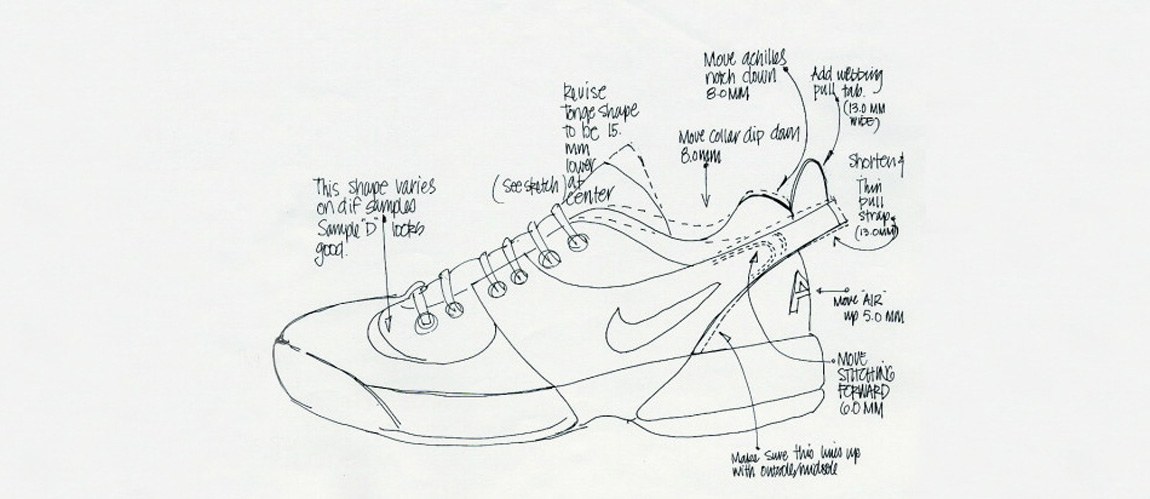 This shape varies
on dif samples
Sample "D" looks
good!
Revise
Tonge shape
to be 15.
mm
lower
(See sketch) at
center
Move achilles
notch down
8.0 MM
Move collar dip down
8.0mm
Add webbing
pull tab.
(13.0 MM
WIDE)
Shorten &
Thin
pull
strap
(13.0mm)
A
Move "AIR"
up 5.0 MM
MOVE
STITCHING
FORWARD
6.0 MM
Make sure this lines up
with outside/midsole